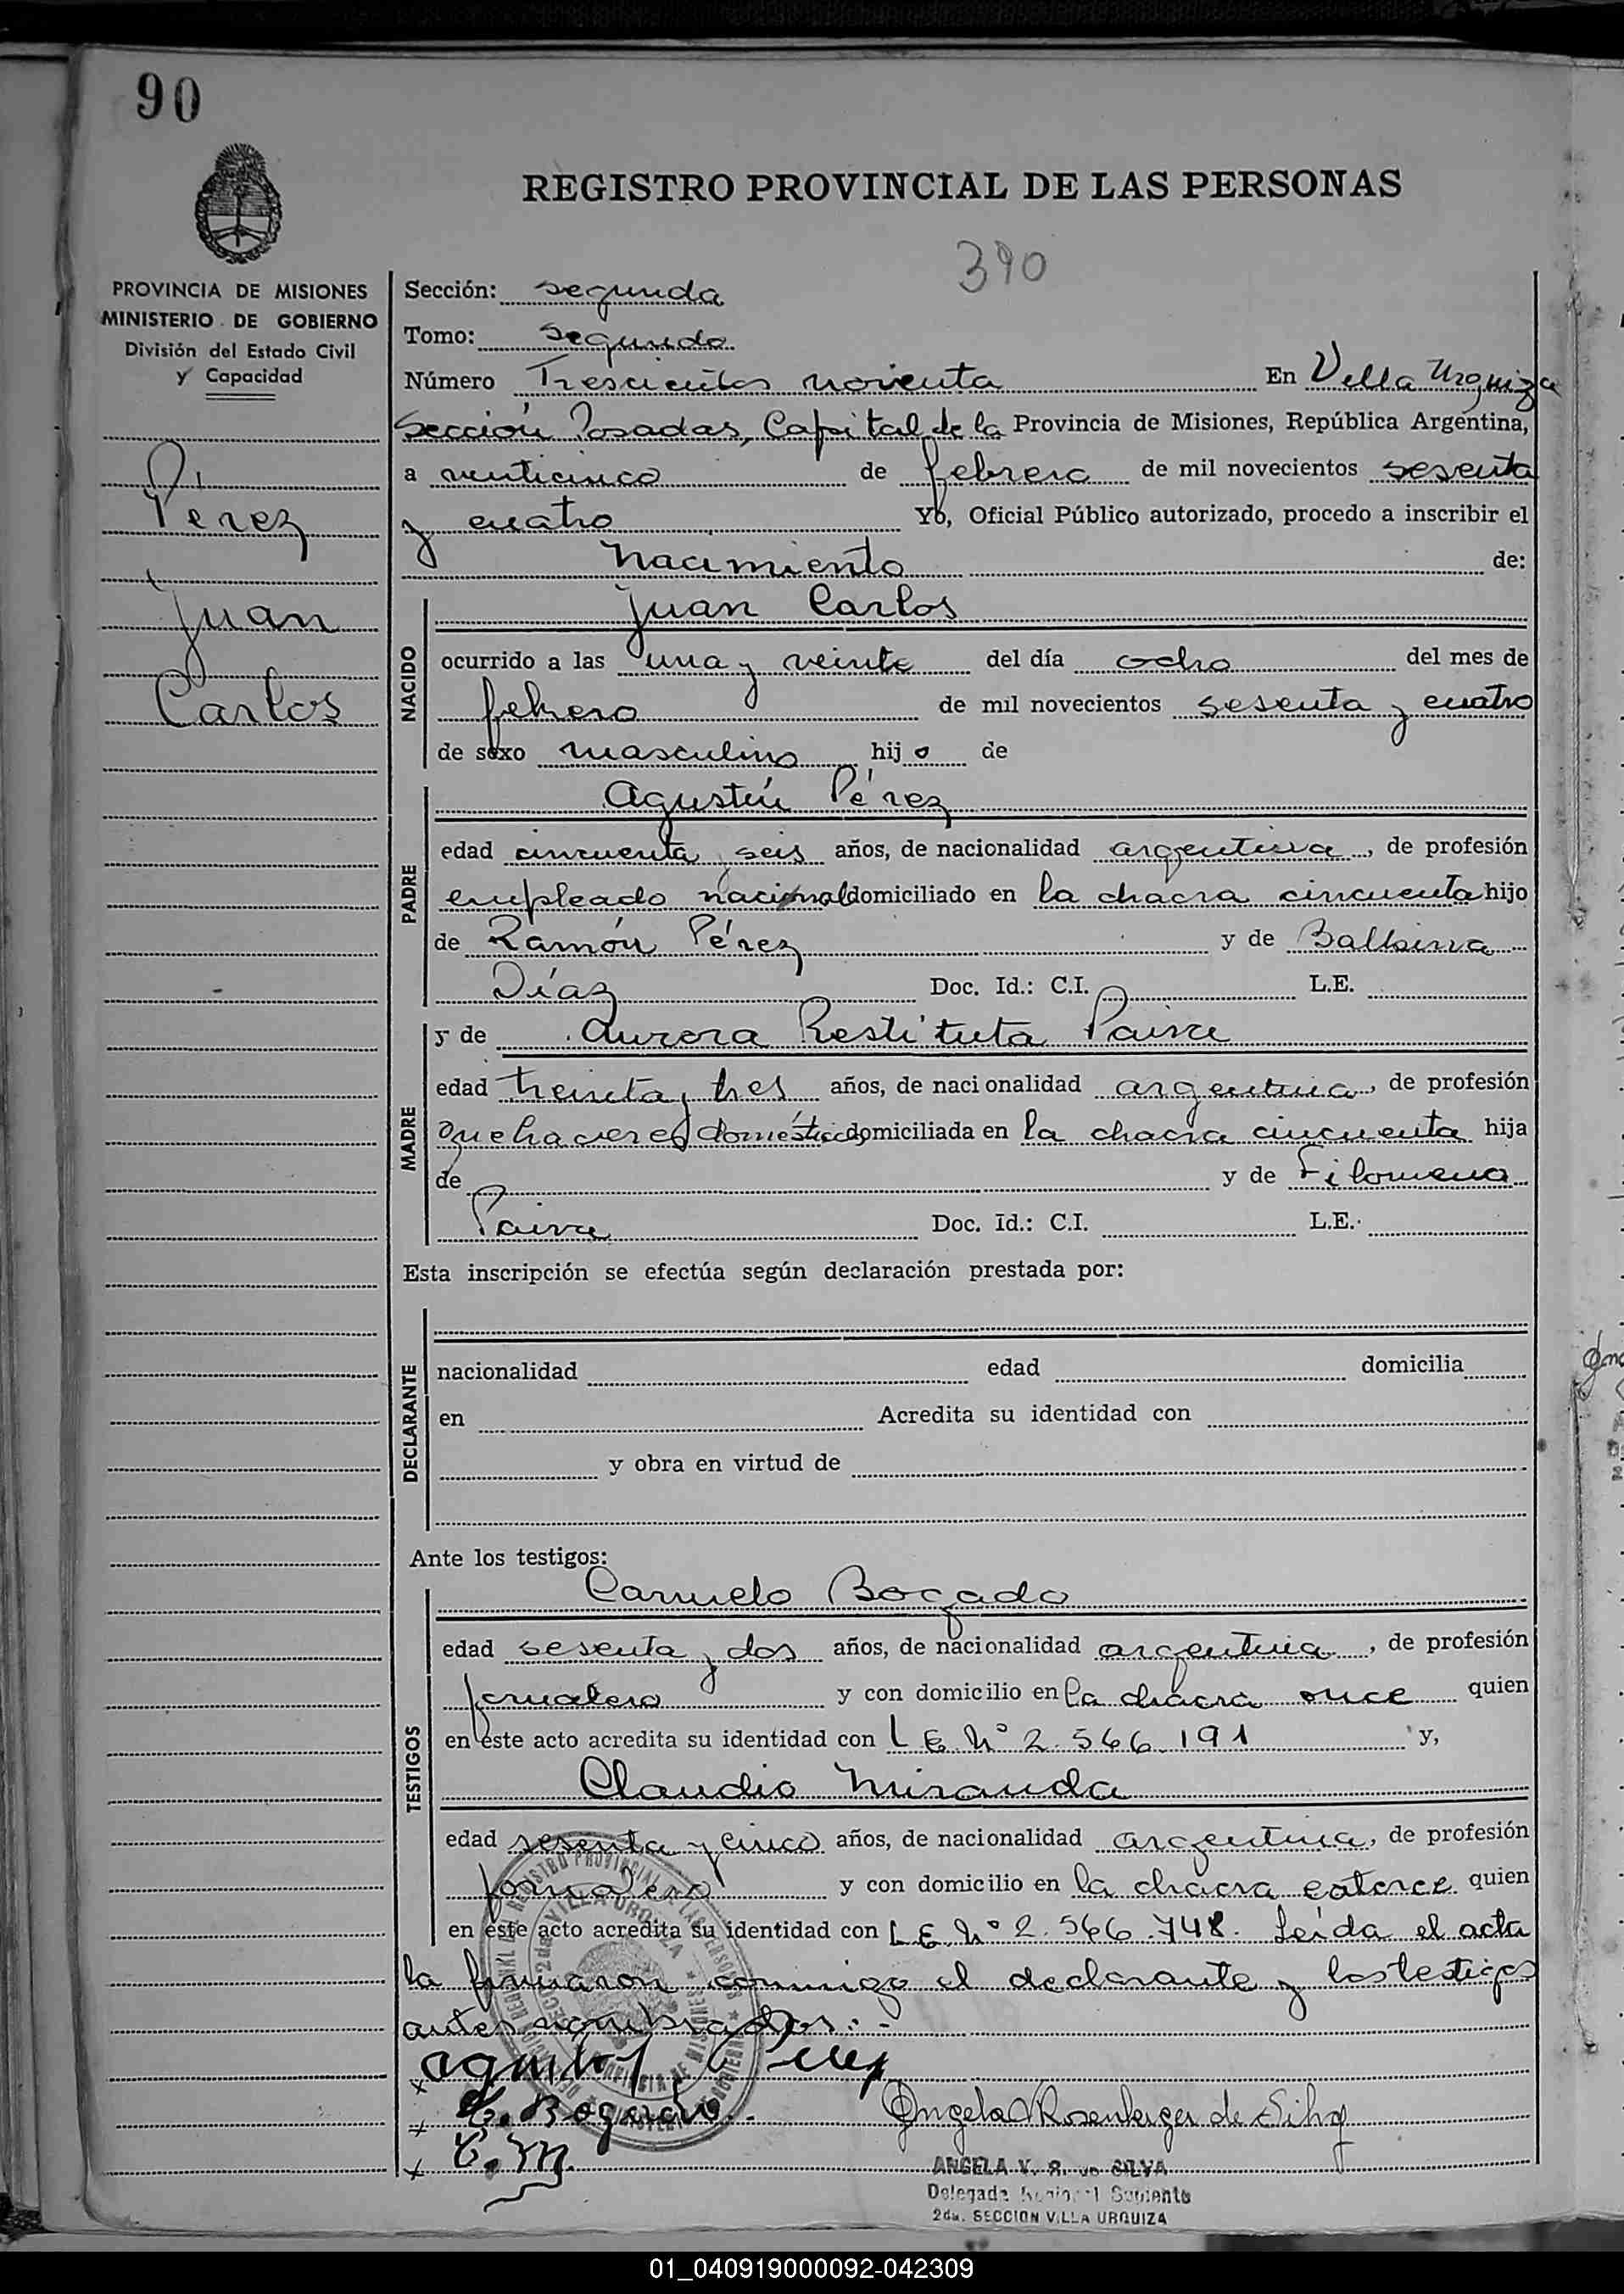 90
REGISTRO PROVINCIAL DE LAS PERSONAS
390
PROVINCIA DE MISIONES
MINISTERIO DE GOBIERNO
División del Estado Civil
y Capacidad
Perez
Juan
Carlos
Sección: segunda
Tomo: segundo
Número Trescientos noventa En Villa Urquiza
Sección Posadas, Capital de la Provincia de Misiones, República Argentina,
a venticinco de febrero de mil novecientos sesenta
y cuatro Yo, Oficial Público autorizado, procedo a inscribir el
nacimiento de:
NACIDO
Juan Carlos
ocurrido a las una y veinte del día ocho del mes de
febrero de mil novecientos sesenta y cuatro
de sexo masculino hijo de
PADRE
Agustín Pérez
edad cincuenta y seis años, de nacionalidad argentina, de profesión
empleado nacional domiciliado en la chacra cincuenta hijo
de Ramón Pérez y de Balbina
Díaz Doc. Id.: C.I. L.E.
MADRE
y de Aurora Restituta Paiva
edad treinta y tres años, de nacionalidad argentina, de profesión
quehaceres domésticos domiciliada en la chacra cincuenta hija
de y de Filomena
Paiva Doc. Id.: C.I. L.E.
Esta inscripción se efectúa según declaración prestada por:
DECLARANTE
nacionalidad edad domicilia
en Acredita su identidad con
y obra en virtud de
Ante los testigos:
TESTIGOS
Carmelo Bogado
edad sesenta y dos años, de nacionalidad argentina, de profesión
jornalero y con domicilio en la chacra once quien
en este acto acredita su identidad con L E Nº 2.566.191 y,
Claudio Miranda
edad sesenta y cinco años, de nacionalidad argentina, de profesión
jornalero y con domicilio en la chacra catorce quien
en este acto acredita su identidad con L E Nº 2.566.748. Leída el acta
la firmaron conmigo el declarante y los testigos
antes nombrados.-
C. Bogado
C. M.
Angela Rosenberger de Silva
ANGELA V. R. DE SILVA
Delegada Regional Suplente
2da. SECCION VILLA URQUIZA
01_040919000092-042309